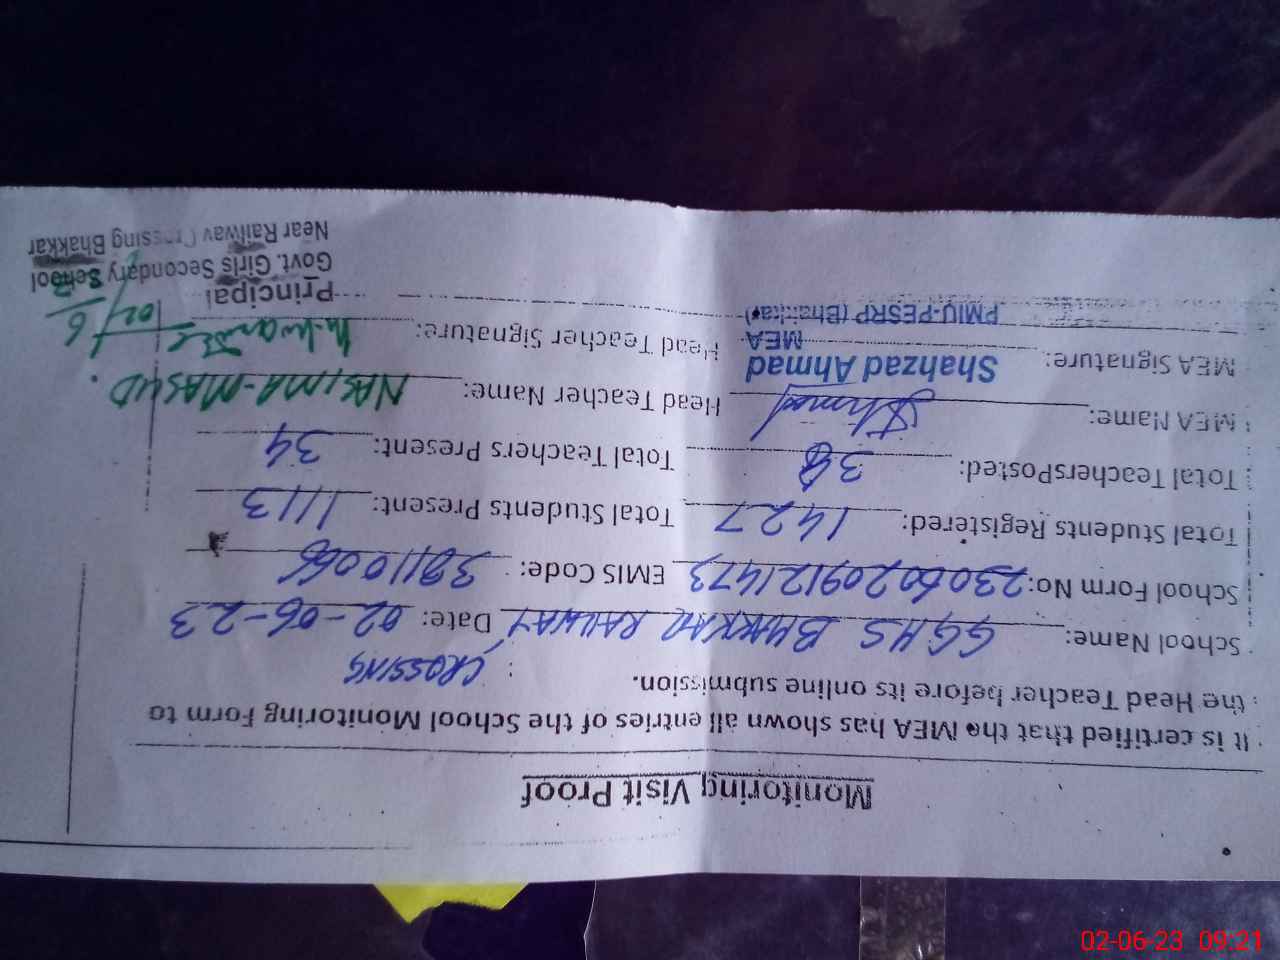 Monitoring Visit Proof
It is certified that the MEA has shown all entries of the School Monitoring Form to
the Head Teacher before its online submission.
CROSSING
School Name: GGHS BHAKKAR RAILWAY Date: 02-06-23
School Form No: 23060209121473 EMIS Code: 38110066
Total Students Registered: 1427 Total Students Present: 1113
Total TeachersPosted: 38 Total Teachers Present: 34
MEA Name: Head Teacher Name: NASIMA-MASUD.
MEA Signature: Shahzad Ahmad Head Teacher Signature: 02/6
MEA
PMIU-PESRP (Bhakkar)
Principal
Govt. Girls Secondary School
Near Railway Crossing Bhakkar
02-06-23 09:21